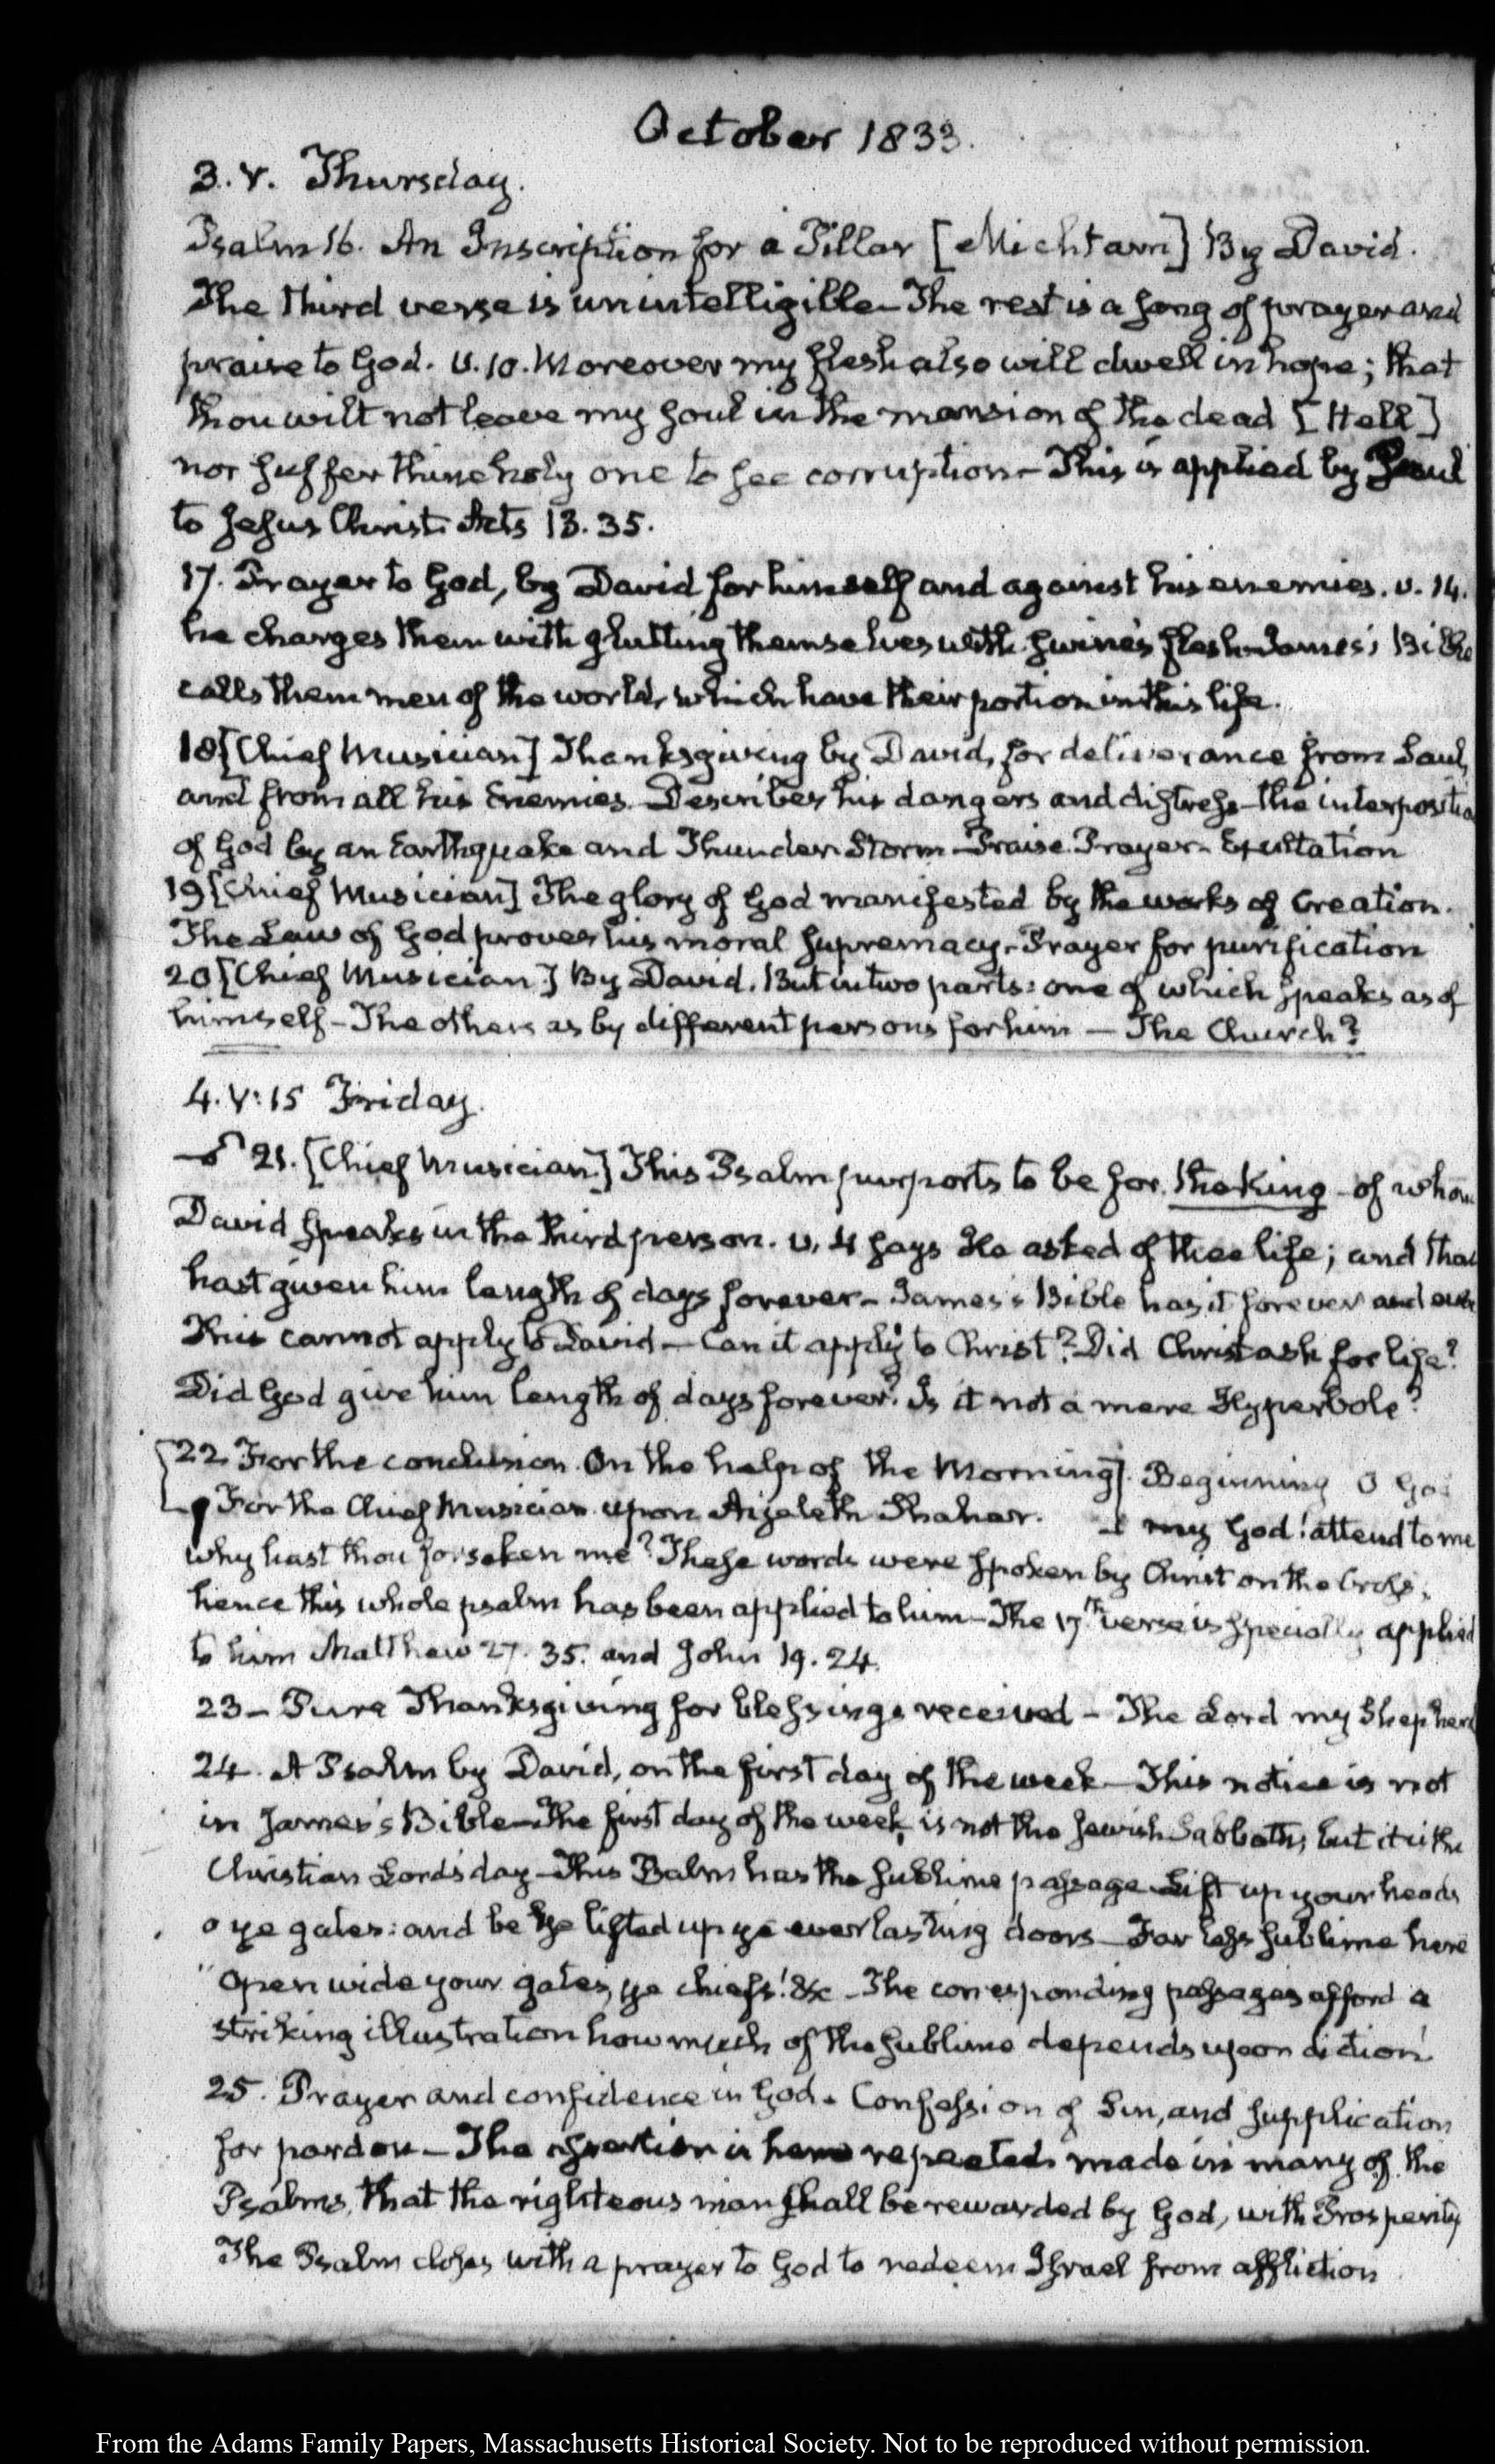 October 1833.
3. V. Thursday.
Psalm 16. An Inscription for a Pillar [Michtam] By David.
The third verse is unintelligible—The rest is a song of prayer and
praise to God. v. 10. Moreover my flesh also will dwell in hope; that
thou wilt not leave my soul in the mansion of the dead [Hell]
nor suffer thine holy one to see corruption—This is applied by Paul
to Jesus Christ. Acts 13. 35.
17. Prayer to God, by David for himself and against his enemies. v. 14.
he charges them with glutting themselves with swine's flesh—James's Bible
calls them men of the world, which have their portion in this life.
18 [Chief Musician] Thanksgiving by David, for deliverance from Saul,
and from all his Enemies. Describes his dangers and distress—the interpositio
of God by an Earthquake and Thunder Storm—Praise. Prayer. Exultation
19 [Chief Musician] The glory of God manifested by the works of Creation.
The Law of God proves his moral supremacy. Prayer for purification
20 [Chief Musician] By David. But in two parts: one of which speaks as of
himself—The others as by different persons for him—The Church?
4. V:15 Friday.
21. [Chief Musician] This Psalm purports to be for the King—of whom
David speaks in the third person. v. 4 says He asked of thee life; and thou
hast given him length of days forever—James's Bible has it forever and ever
This cannot apply to David—Can it apply to Christ? Did Christ ask for life?
Did God give him length of days forever? Is it not a mere Hyperbole?
22 For the conclusion. On the help of the Morning] Beginning O God
For the Chief Musician upon Aijeleth Shahar. my God! attend to me
why hast thou forsaken me? These words were spoken by Christ on the Cross,
hence this whole psalm has been applied to him—The 17th verse is specially applied
to him Matthew 27. 35. and John 19. 24.
23—Pure Thanksgiving for blessings received—The Lord my Shepherd
24. A Psalm by David, on the first day of the week—This notice is not
in James's Bible—The first day of the week, is not the Jewish Sabbath, but it is the
Christian Lord's day—This Psalm has the sublime passage Lift up your heads
o ye gates: and be ye lifted up ye everlasting doors—Far less sublime here
"Open wide your gates, ye chiefs! &c—The corresponding passages afford a
striking illustration how much of the sublime depends upon diction
25. Prayer and confidence in God. Confession of Sin, and supplication
for pardon—The assertion is here repeated made in many of the
Psalms, that the righteous man shall be rewarded by God, with Prosperity
The Psalm closes with a prayer to God to redeem Israel from affliction
From the Adams Family Papers, Massachusetts Historical Society. Not to be reproduced without permission.